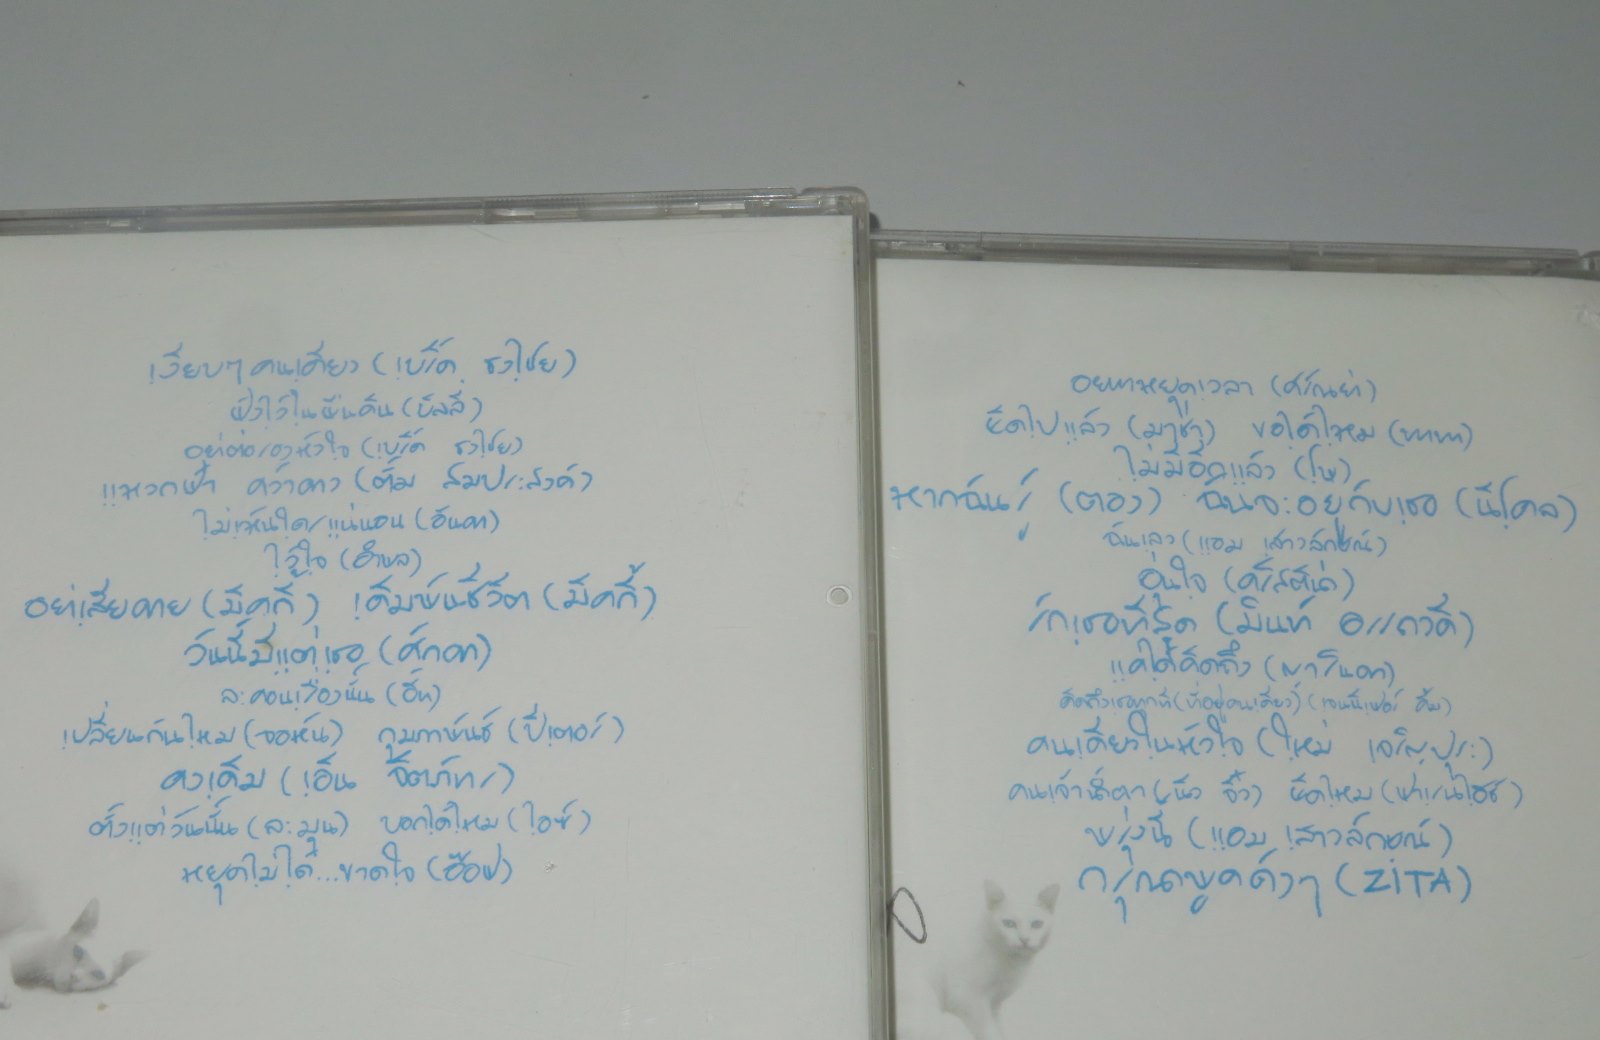 เงียบๆคนเดียว (เบิร์ด ธงไชย)
ฝังไว้ในผืนดิน (บิลลี่)
อย่าต่อรองหัวใจ (เบิร์ด ธงไชย)
แหวกฟ้า คว้าดาว (ตั้ม สมประสงค์)
ไม่เห็นใครแน่นอน (อินคา)
ไว้ใจ (อำพล)
อย่าเสียดาย (มิคกี้) เดิมพันชีวิต (มิคกี้)
วันนี้มีแต่เธอ (ศักดา)
ละครเรื่องนั้น (อิ้ท)
เปลี่ยนกันไหม (จอห์น) กุมภาพันธ์ (ปีเตอร์)
คงเดิม (เอิน จิตภัทร)
ตั้งแต่วันนั้น (ละมุน) บอกได้ไหม (ไอซ์)
หยุดไม่ได้...ขาดใจ (อ๊อฟ)
อยากหยุดเวลา (ศรัณย่า)
ผิดไปแล้ว (มาช่า) ขอได้ไหม (ทาทา)
ไม่มีอีกแล้ว (โบ)
หากฉันรู้ (ตอง) ฉันจะอยู่กับเธอ (นิโคล)
ฉันเลว (แอม เสาวลักษณ์)
อุ่นใจ (คริสติน่า)
รักเธอที่สุด (มิ้นท์ อรรถวดี)
แค่ได้คิดถึง (ญารินดา)
คิดถึงเธอทุกที (ที่อยู่คนเดียว) (เจนนิเฟอร์ คิ้ม)
คนเดียวในหัวใจ (ใหม่ เจริญปุระ)
คนเจ้าน้ำตา (นิว จิ๋ว) ผิดไหม (ฟาเรนไฮธ์)
พรุ่งนี้ (แอม เสาวลักษณ์)
กรุณาพูดดังๆ (ZITA)